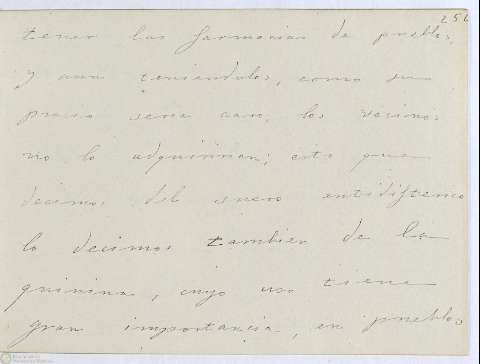 256
tener las farmacias de pueblos,
y aun teniendolos, como su
precio seria caro, los vecinos
no lo adquiririan; esto que
decimos del suero antidiftérico
lo decimos tambien de la
quinina, cuyo uso tiene
gran importancia, en pueblos